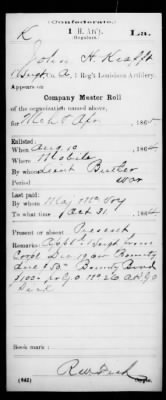 (Confederate.)
K 1 H. Art'y. La.
(Regulars.)
John H. Krafft
Sergt Co. A, 1 Reg't Louisiana Artillery.
Appears on
Company Muster Roll
of the organization named above,
for Mch & Apr, 1865
Enlisted:
When Aug 10, 186
Where Mobile
By whom Lieut Butler
Period war
Last paid:
By whom Maj
To what time Oct 31, 1864
Present or absent Present
Remarks: Sergt from
Corpl Bounty
due $50 Bounty Bond
$100
Book mark:
(642) Copyist.